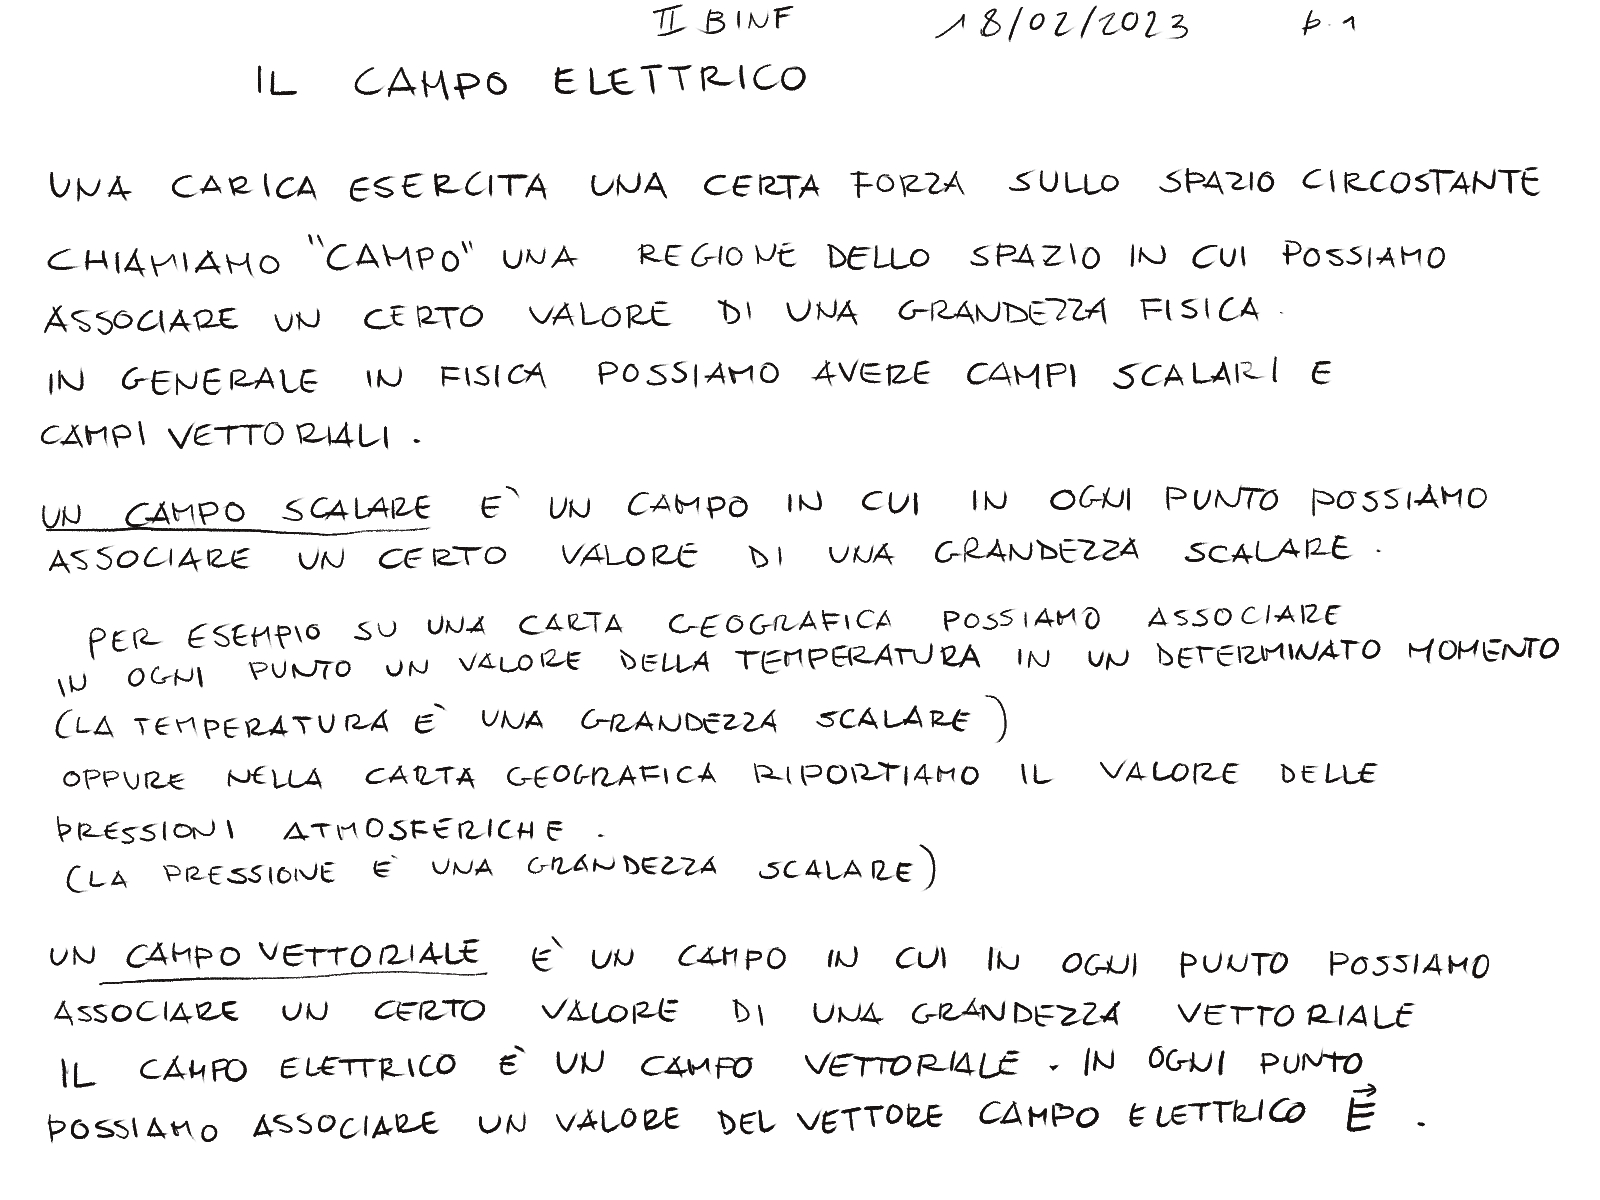 II BINF 18/02/2023 p. 1
IL CAMPO ELETTRICO
UNA CARICA ESERCITA UNA CERTA FORZA SULLO SPAZIO CIRCOSTANTE
CHIAMIAMO "CAMPO" UNA REGIONE DELLO SPAZIO IN CUI POSSIAMO
ASSOCIARE UN CERTO VALORE DI UNA GRANDEZZA FISICA.
IN GENERALE IN FISICA POSSIAMO AVERE CAMPI SCALARI E
CAMPI VETTORIALI.
UN CAMPO SCALARE E` UN CAMPO IN CUI IN OGNI PUNTO POSSIAMO
ASSOCIARE UN CERTO VALORE DI UNA GRANDEZZA SCALARE.
PER ESEMPIO SU UNA CARTA GEOGRAFICA POSSIAMO ASSOCIARE
IN OGNI PUNTO UN VALORE DELLA TEMPERATURA IN UN DETERMINATO MOMENTO
(LA TEMPERATURA E` UNA GRANDEZZA SCALARE)
OPPURE NELLA CARTA GEOGRAFICA RIPORTIAMO IL VALORE DELLE
PRESSIONI ATMOSFERICHE.
(LA PRESSIONE E` UNA GRANDEZZA SCALARE)
UN CAMPO VETTORIALE E` UN CAMPO IN CUI IN OGNI PUNTO POSSIAMO
ASSOCIARE UN CERTO VALORE DI UNA GRANDEZZA VETTORIALE
IL CAMPO ELETTRICO È UN CAMPO VETTORIALE. IN OGNI PUNTO
POSSIAMO ASSOCIARE UN VALORE DEL VETTORE CAMPO ELETTRICO E⃗.